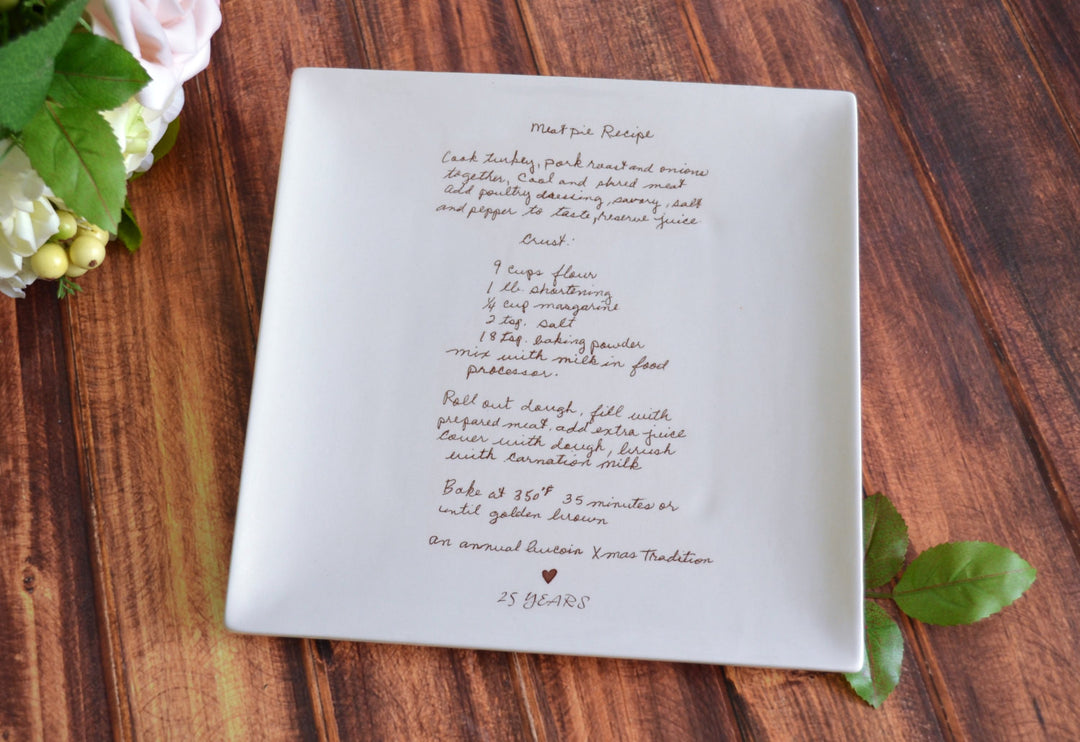 Meat pie Recipe
Cook turkey, pork roast and onions
together, Cool and shred meat
add poultry dressing, savory, salt
and pepper to taste, reserve juice
Crust:
9 cups flour
1 lb. shortening
¼ cup margarine
2 tsp. salt
18 tsp. baking powder
mix with milk in food
processor.
Roll out dough, fill with
prepared meat, add extra juice
cover with dough, brush
with carnation milk
Bake at 350°F 35 minutes or
until golden brown
an annual Xmas Tradition
25 YEARS